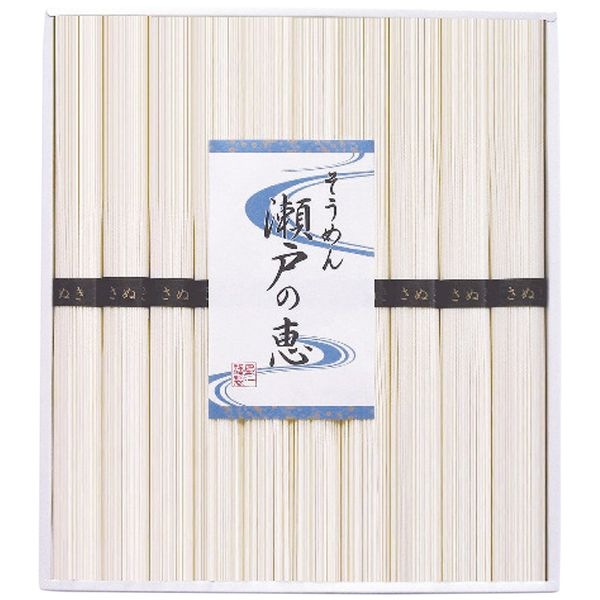 そうめん
瀬戸の恵
ぬき
さぬき
さぬ
さぬ
さぬ
さぬ